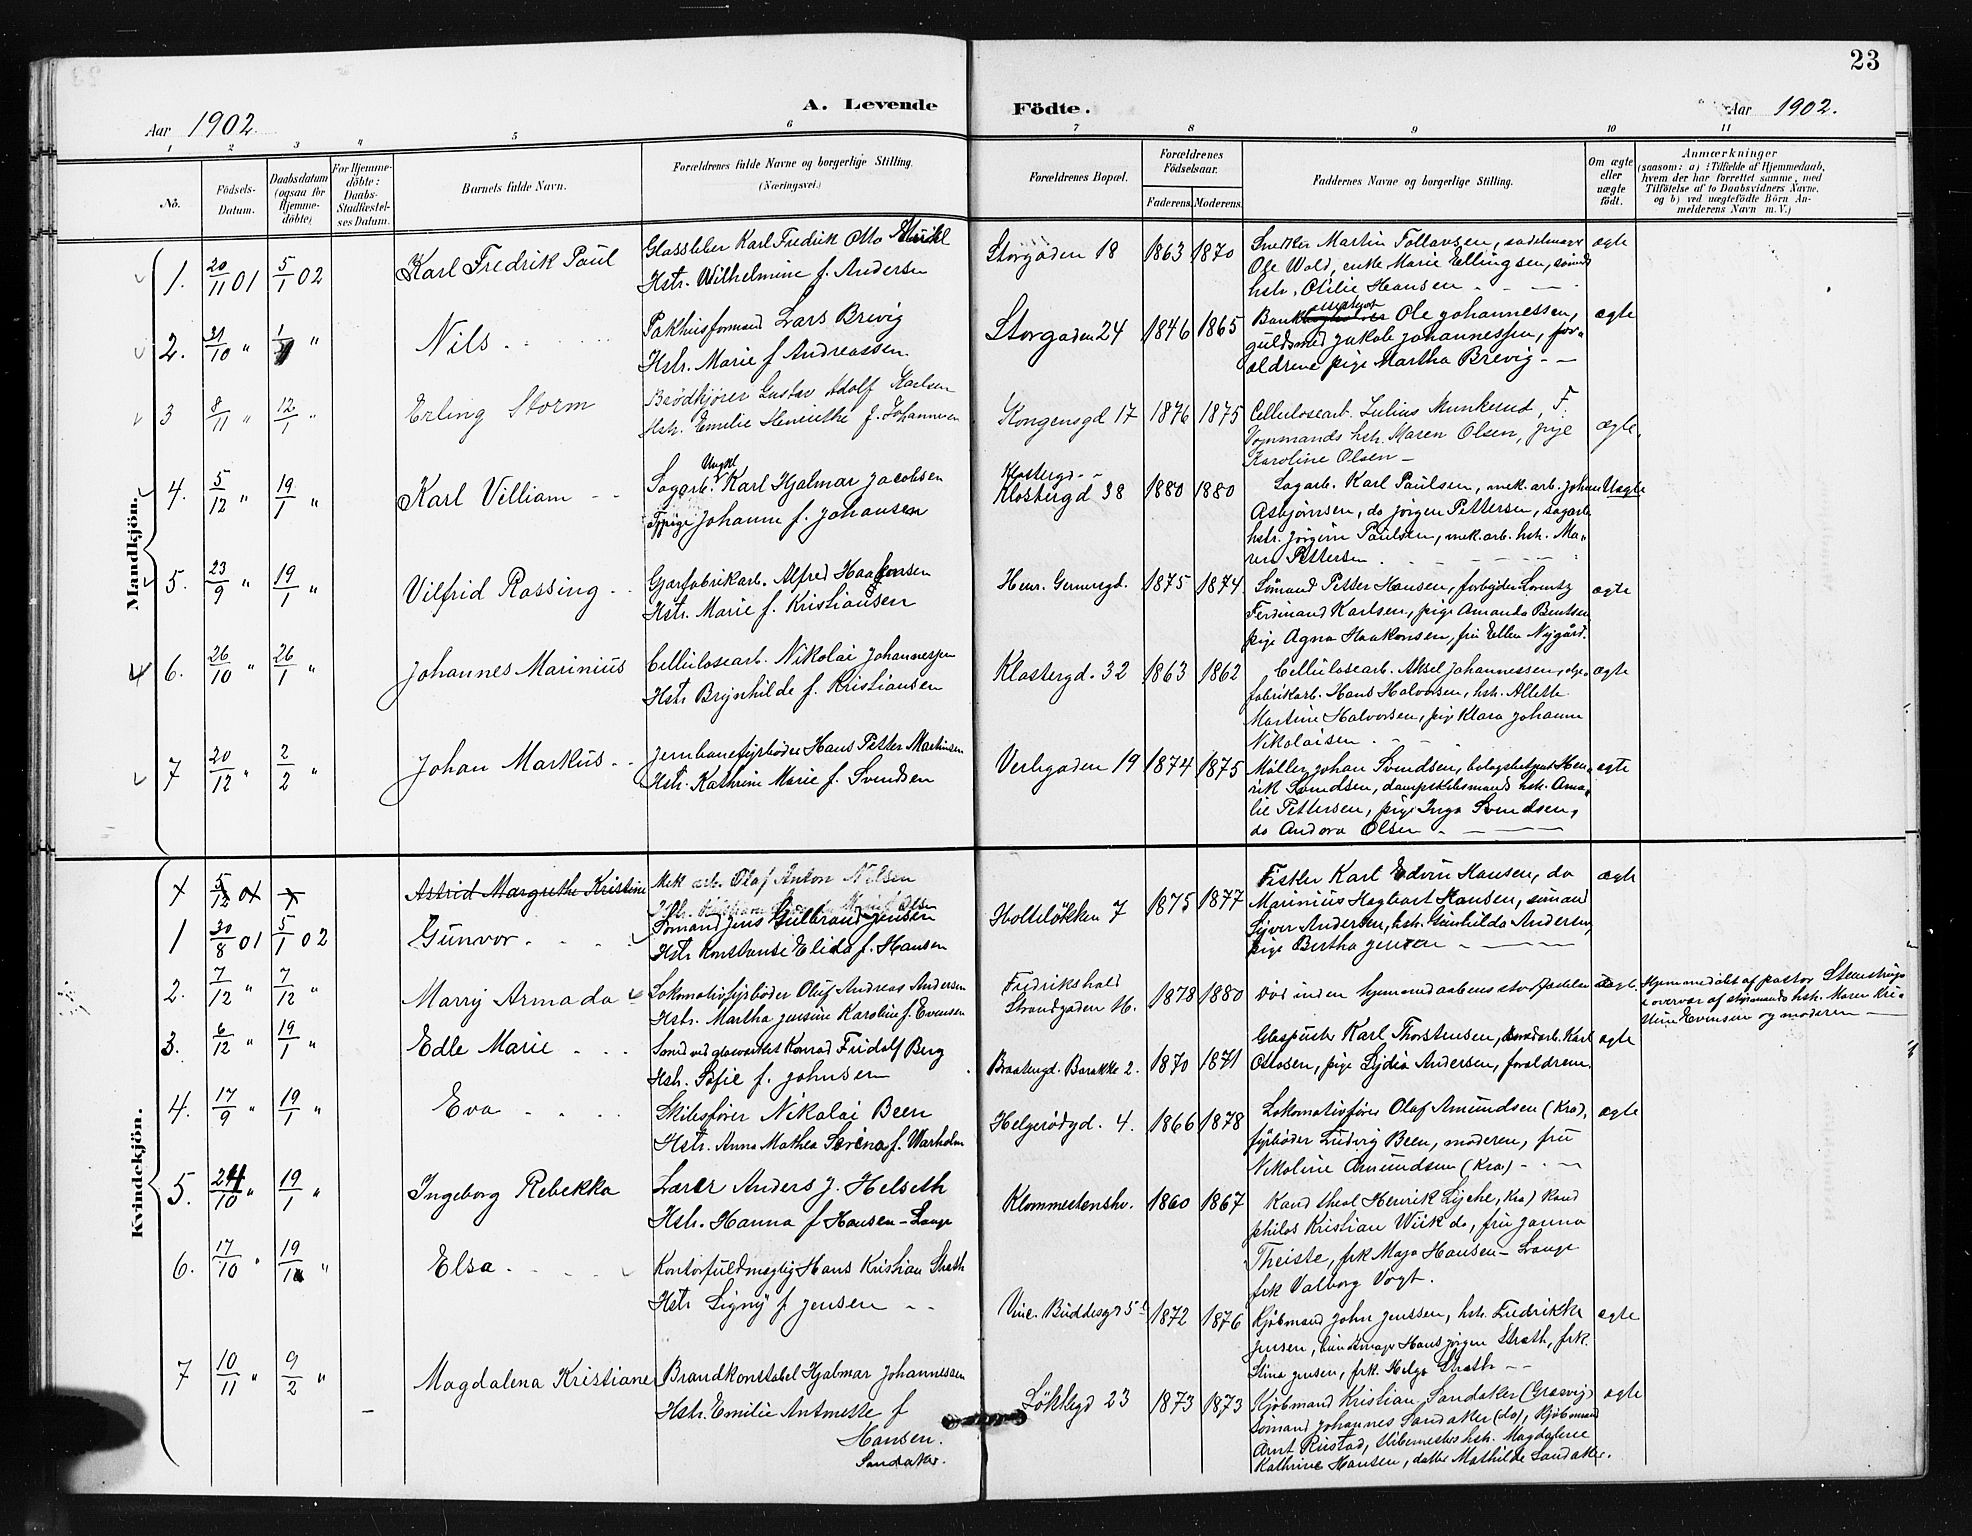 23
A. Levende Födte.
Aar 1902.
Aar 1902.
1 2 3 4 5 6 7 8 9 10 11
No.
Födsels-Datum.
Daabsdatum (ogsaa for Hjemme-döbte)
For Hjemme-döbte: Daabs-Stadfæstel-ses Datum.
Barnets fulde Navn.
Forældrenes fulde Navne og borgerlige Stilling. (Næringsvei.)
Forældrenes Bopæl.
Forældrenes Födselsaar.
Faderens. Moderens.
Faddernes Navne og borgerlige Stilling.
Om ægte eller uægte födt.
Anmærkninger
(saasom: a) i Tilfælde af Hjemmedaab, hvem der har forrettet samme, med Tilföielse af to Daabsvidners Navne, og b) ved uægtefödte Börn An-melderens Navn m. V.)
Mandkjön.
1. 20/11 01 5/1 02 Karl Fredrik Paul
Karl Fredrik Otto
Hstr. Wilhelmine f. Andersen
Storgaden 18 1863 1870
Snedker Martin Tollavsen, sadelmager
Ole Wold, enke Marie Ellingsen, sömds
hstr. Otilie Hansen
ægte
2. 31/10 " Nils
Pakhusformand Lars Brevig
Hstr. Marie f Andreassen.
Storgaden 24 1846 1865
Ole Johannessen,
guldsmed Jakob Johannessen, for-
ældrene pige Martha Brevig
ægte
3 8/11 " 12/1 " Erling Storm
Brödkjörer Gustav Adolf Karlsen
Hstr. Emilie Henriette f. Johannesen
Kongensgd 17 1876 1875
Cellulosearb. Julius Munkerud, F.
hstr. Maren Olsen, pige
Karoline Olsen
ægte.
4. 5/12 " 19/1 " Karl Villiam
Ungkl
Sagarb. Karl Hjalmar Jacobsen
Tjpige Johanne f. Johansen
Klostergd
Klostergd 38 1880 1880
Sagarb. Karl Paulsen, mek. arb. Johan
Asbjørnsen, do Jørgen Pettersen, sagarb
hstr. Jørgine Paulsen, mek. arb. hstr. Ma-
ren Pettersen
Uægte
5. 23/9 " 19/1 " Vilfrid Rossing
Gjærfabrikarb. Alfred Haakonsen
Hstr. Marie f. Kristiansen
Henr. Gernersgd. 1875 1874
Sömand Petter Hansen, fyrbøder Lorentz
Ferdinand Karlsen, pige Amanda Bentsen
pige Agna Haakonsen, fru Ellen Nygård.
ægte
6. 26/10 " 26/1 " Johannes Marinius
Cellulosearb. Nikolai Johannessen
Hstr Brynhilde f. Kristiansen
Klostergd. 32 1863 1862
Cellulosearb. Aksel Johannessen, olje-
fabrikarb. Hans Halvorsen, hstr. Alette
Martine Halvorsen, pige Klara Johanne
Nikolaisen
ægte
7 20/12 " 2/2 " Johan Markus
Jernbanefyrbøder Hans Petter Martinsen
Hstr. Kathrine Marie f. Svendsen
Verkgaden 19 1874 1875
Møller Johan Svendsen, Hen-
rik Svendsen, dampskibsmands hstr. Ama-
lie Pettersen, pige Inga Svendsen,
do Andora Olsen
ægte
Kvindekjön.
Astrid Margrethe Kristine
Mek arb. Olaf Anton Nilsen
1 30/8 01 5/1 02 Gunvor
Sömand Jens Gulbrand Jensen
Hstr Konstanse Elida f. Hansen
Holteløkken 7 1875 1877
Fisker Karl Edvin Hansen, do
Marinius Hagbart Hansen, sömand
Syver Andersen, hstr. Gunhilda Andersen,
pige Bertha Jensen
ægte
2. 7/12 " 7/12 " Marry Armada
Lokomotivfyrbøder Oluf Andreas Andersen
Hstr. Martha Jensine Karoline f. Evensen
Fredrikshald
Strandgaden 16. 1878 1880
Död inden hjemmedaabens stadfæstelse
ægte.
Hjemmedöbt af pastor
i overvær af styrmands hstr. Maren Kri-
stine Evensen og moderen
3. 6/12 " 19/1 " Edle Marie
Smed ved glasværket Konrad Fridolf Berg
Hstr. Sofie f. Johnsen
Braatengd. Barakke 2. 1870 1871
Glaspuster Karl Thorstensen, Karl
Ottosen, pige Lydia Andersen, forældrene.
ægte
4. 17/9 " 19/1 " Eva
Skibsfører Nikolai Been
Hstr. Anna Mathea Severine f. Warholm
Helgerödgd. 4. 1866 1878
Lokomotivfører Olaf Amundsen (Kra),
fyrbøder Ludvig Been, moderen, fru
Nikoline Amundsen (Kra)
ægte
5. 24/10 " 19/1 " Ingeborg Rebekka
Lærer Anders J. Helseth
Hstr. Hanna f Hansen-Lange
1860 1867
Kand theol Henrik Lyche, Kra) Kand
philos Kristian Wiik do, fru Janna
Theiste, frk Maja Hansen-Lange
frk Valborg Vogt.
6. 17/10 " 19/1 " Elsa
Kontorfuldmægtig Hans Kristian Stræth
Hstr Signy f Jensen
Vinc. Buddesgd 5 1872 1876
Kjøbmand John Jenssen, hstr. Fredrikke
Jensen, Hans Jørgen Stræth, frk.
Stina Jensen, frk. Helga Stræth
ægte
7 10/11 " 9/2 " Magdalena Kristiane
Brandkonstabel Hjalmar Johannessen
Hstr. Emilie Antonette f
Hansen.
Sandaker.
Løkkegd 23 1873 1873
Kjøbmand Kristian Sandaker (Græsvig)
Sömand Johannes Sandaker (do), kjøbmand
Arnt Rustad, hstr. Magdalene
Kathrine Hansen, datter Mathilde Sandaker.
ægte